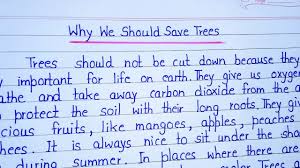 Why We Should Save Trees
Trees should not be cut down because they
important for life on earth. They give us oxygen
and take away carbon dioxide from the
protect the soil with their long roots. They
fruits, like mangoes, apples, peaches
It is always nice to sit under the
during summer. In places where there
Trees